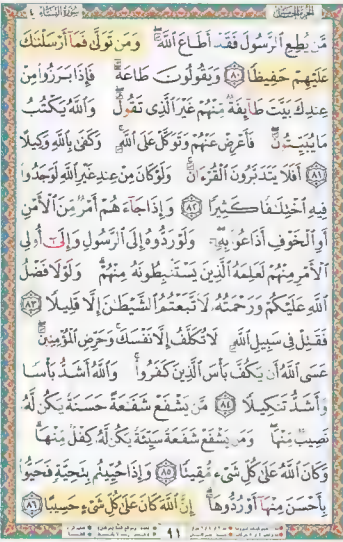 الجزء الخامس سورة النساء ٤
مَّن يُطِعِ ٱلرَّسُولَ فَقَدْ أَطَاعَ ٱللَّهَ ۖ وَمَن تَوَلَّىٰ فَمَآ أَرْسَلْنَـٰكَ
عَلَيْهِمْ حَفِيظًا ﴿٨٠﴾ وَيَقُولُونَ طَاعَةٌ فَإِذَا بَرَزُوا۟ مِنْ
عِندِكَ بَيَّتَ طَآئِفَةٌ مِّنْهُمْ غَيْرَ ٱلَّذِى تَقُولُ ۖ وَٱللَّهُ يَكْتُبُ
مَا يُبَيِّتُونَ ۖ فَأَعْرِضْ عَنْهُمْ وَتَوَكَّلْ عَلَى ٱللَّهِ ۚ وَكَفَىٰ بِٱللَّهِ وَكِيلًا
﴿٨١﴾ أَفَلَا يَتَدَبَّرُونَ ٱلْقُرْءَانَ ۚ وَلَوْ كَانَ مِنْ عِندِ غَيْرِ ٱللَّهِ لَوَجَدُوا۟
فِيهِ ٱخْتِلَـٰفًا كَثِيرًا ﴿٨٢﴾ وَإِذَا جَآءَهُمْ أَمْرٌ مِّنَ ٱلْأَمْنِ
أَوِ ٱلْخَوْفِ أَذَاعُوا۟ بِهِۦ ۖ وَلَوْ رَدُّوهُ إِلَى ٱلرَّسُولِ وَإِلَىٰٓ أُو۟لِى
ٱلْأَمْرِ مِنْهُمْ لَعَلِمَهُ ٱلَّذِينَ يَسْتَنۢبِطُونَهُۥ مِنْهُمْ ۗ وَلَوْلَا فَضْلُ
ٱللَّهِ عَلَيْكُمْ وَرَحْمَتُهُۥ لَٱتَّبَعْتُمُ ٱلشَّيْطَـٰنَ إِلَّا قَلِيلًا ﴿٨٣﴾
فَقَـٰتِلْ فِى سَبِيلِ ٱللَّهِ لَا تُكَلَّفُ إِلَّا نَفْسَكَ ۚ وَحَرِّضِ ٱلْمُؤْمِنِينَ ۖ
عَسَى ٱللَّهُ أَن يَكُفَّ بَأْسَ ٱلَّذِينَ كَفَرُوا۟ ۚ وَٱللَّهُ أَشَدُّ بَأْسًا
وَأَشَدُّ تَنكِيلًا ﴿٨٤﴾ مَّن يَشْفَعْ شَفَـٰعَةً حَسَنَةً يَكُن لَّهُۥ
نَصِيبٌ مِّنْهَا ۖ وَمَن يَشْفَعْ شَفَـٰعَةً سَيِّئَةً يَكُن لَّهُۥ كِفْلٌ مِّنْهَا ۗ
وَكَانَ ٱللَّهُ عَلَىٰ كُلِّ شَىْءٍ مُّقِيتًا ﴿٨٥﴾ وَإِذَا حُيِّيتُم بِتَحِيَّةٍ فَحَيُّوا۟
بِأَحْسَنَ مِنْهَآ أَوْ رُدُّوهَآ ۗ إِنَّ ٱللَّهَ كَانَ عَلَىٰ كُلِّ شَىْءٍ حَسِيبًا ﴿٨٦﴾
٩١